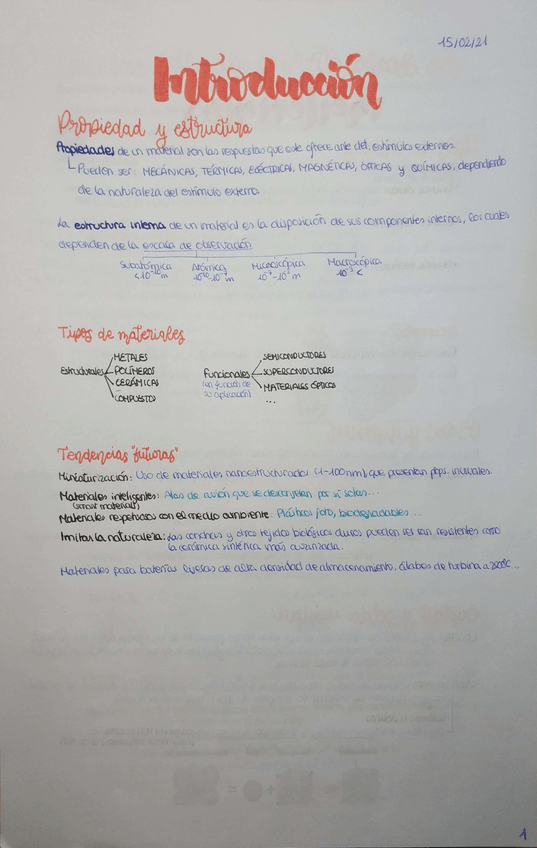 15/02/21
Introducción
Propiedad y estructura
Propiedades de un material son las respuestas que este ofrece ante det. estímulos externos.
Pueden ser: MECÁNICAS, TÉRMICAS, ELÉCTRICAS, MAGNÉTICAS, ÓPTICAS y QUÍMICAS, dependiendo
de la naturaleza del estímulo externo.
La estructura interna de un material es la disposición de sus componentes internos, los cuales
dependen de la escala de observación
Subatómica Atómica Microscópica Macroscópica
<10⁻¹⁰ m m m <
Tipos de materiales
Estructurales
METALES
POLÍMEROS
CERÁMICAS
COMPUESTOS
Funcionales
(en función de
su aplicación)
SEMICONDUCTORES
SUPERCONDUCTORES
MATERIALES ÓPTICOS
...
Tendencias "futuras"
Miniaturización: Uso de materiales nanoestructurados (1-100nm), que presentan props. inusuales.
Materiales inteligentes: Alas de avión que se descongelan por sí solas...
(smart materials)
Materiales respetuosos con el medio ambiente: Plásticos biodegradables...
Imitar la naturaleza: Las conchas y otros tejidos biológicos duros pueden ser tan resistentes como
la cerámica sintética más avanzada.
Materiales para baterías ligeras de alta densidad de almacenamiento, álabes de turbina a
1